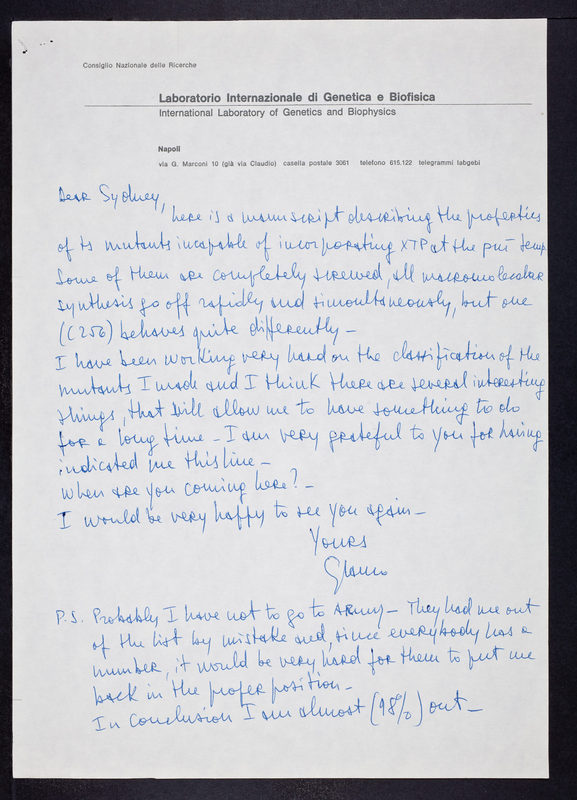 Consiglio Nazionale delle Ricerche
Laboratorio Internazionale di Genetica e Biofisica
International Laboratory of Genetics and Biophysics
Napoli
via G. Marconi 10 (già via Claudio) casella postale 3061 telefono 615.122 telegrammi labgebi
Dear Sydney,
here is a manuscript describing the properties
of ts mutants incapable of incorporating XTP at the temp
Some of them are completely screwed, all macromolecular
synthesis go off rapidly and simoultaneously, but one
((256) behaves quite differently –
I have been working very hard on the classification of the
mutants I made and I think there are several interesting
things, that will allow me to have something to do
for a long time – I am very grateful to you for having
indicated me this line –
When are you coming here? –
I would be very happy to see you again –
Yours
Glauco
P.S. Probably I have not to go to ARmy – They had me out
of the list by mistake and, since everybody has a
number, it would be very hard for them to put me
back in the proper position –
In conclusion I am almost (98%) out –